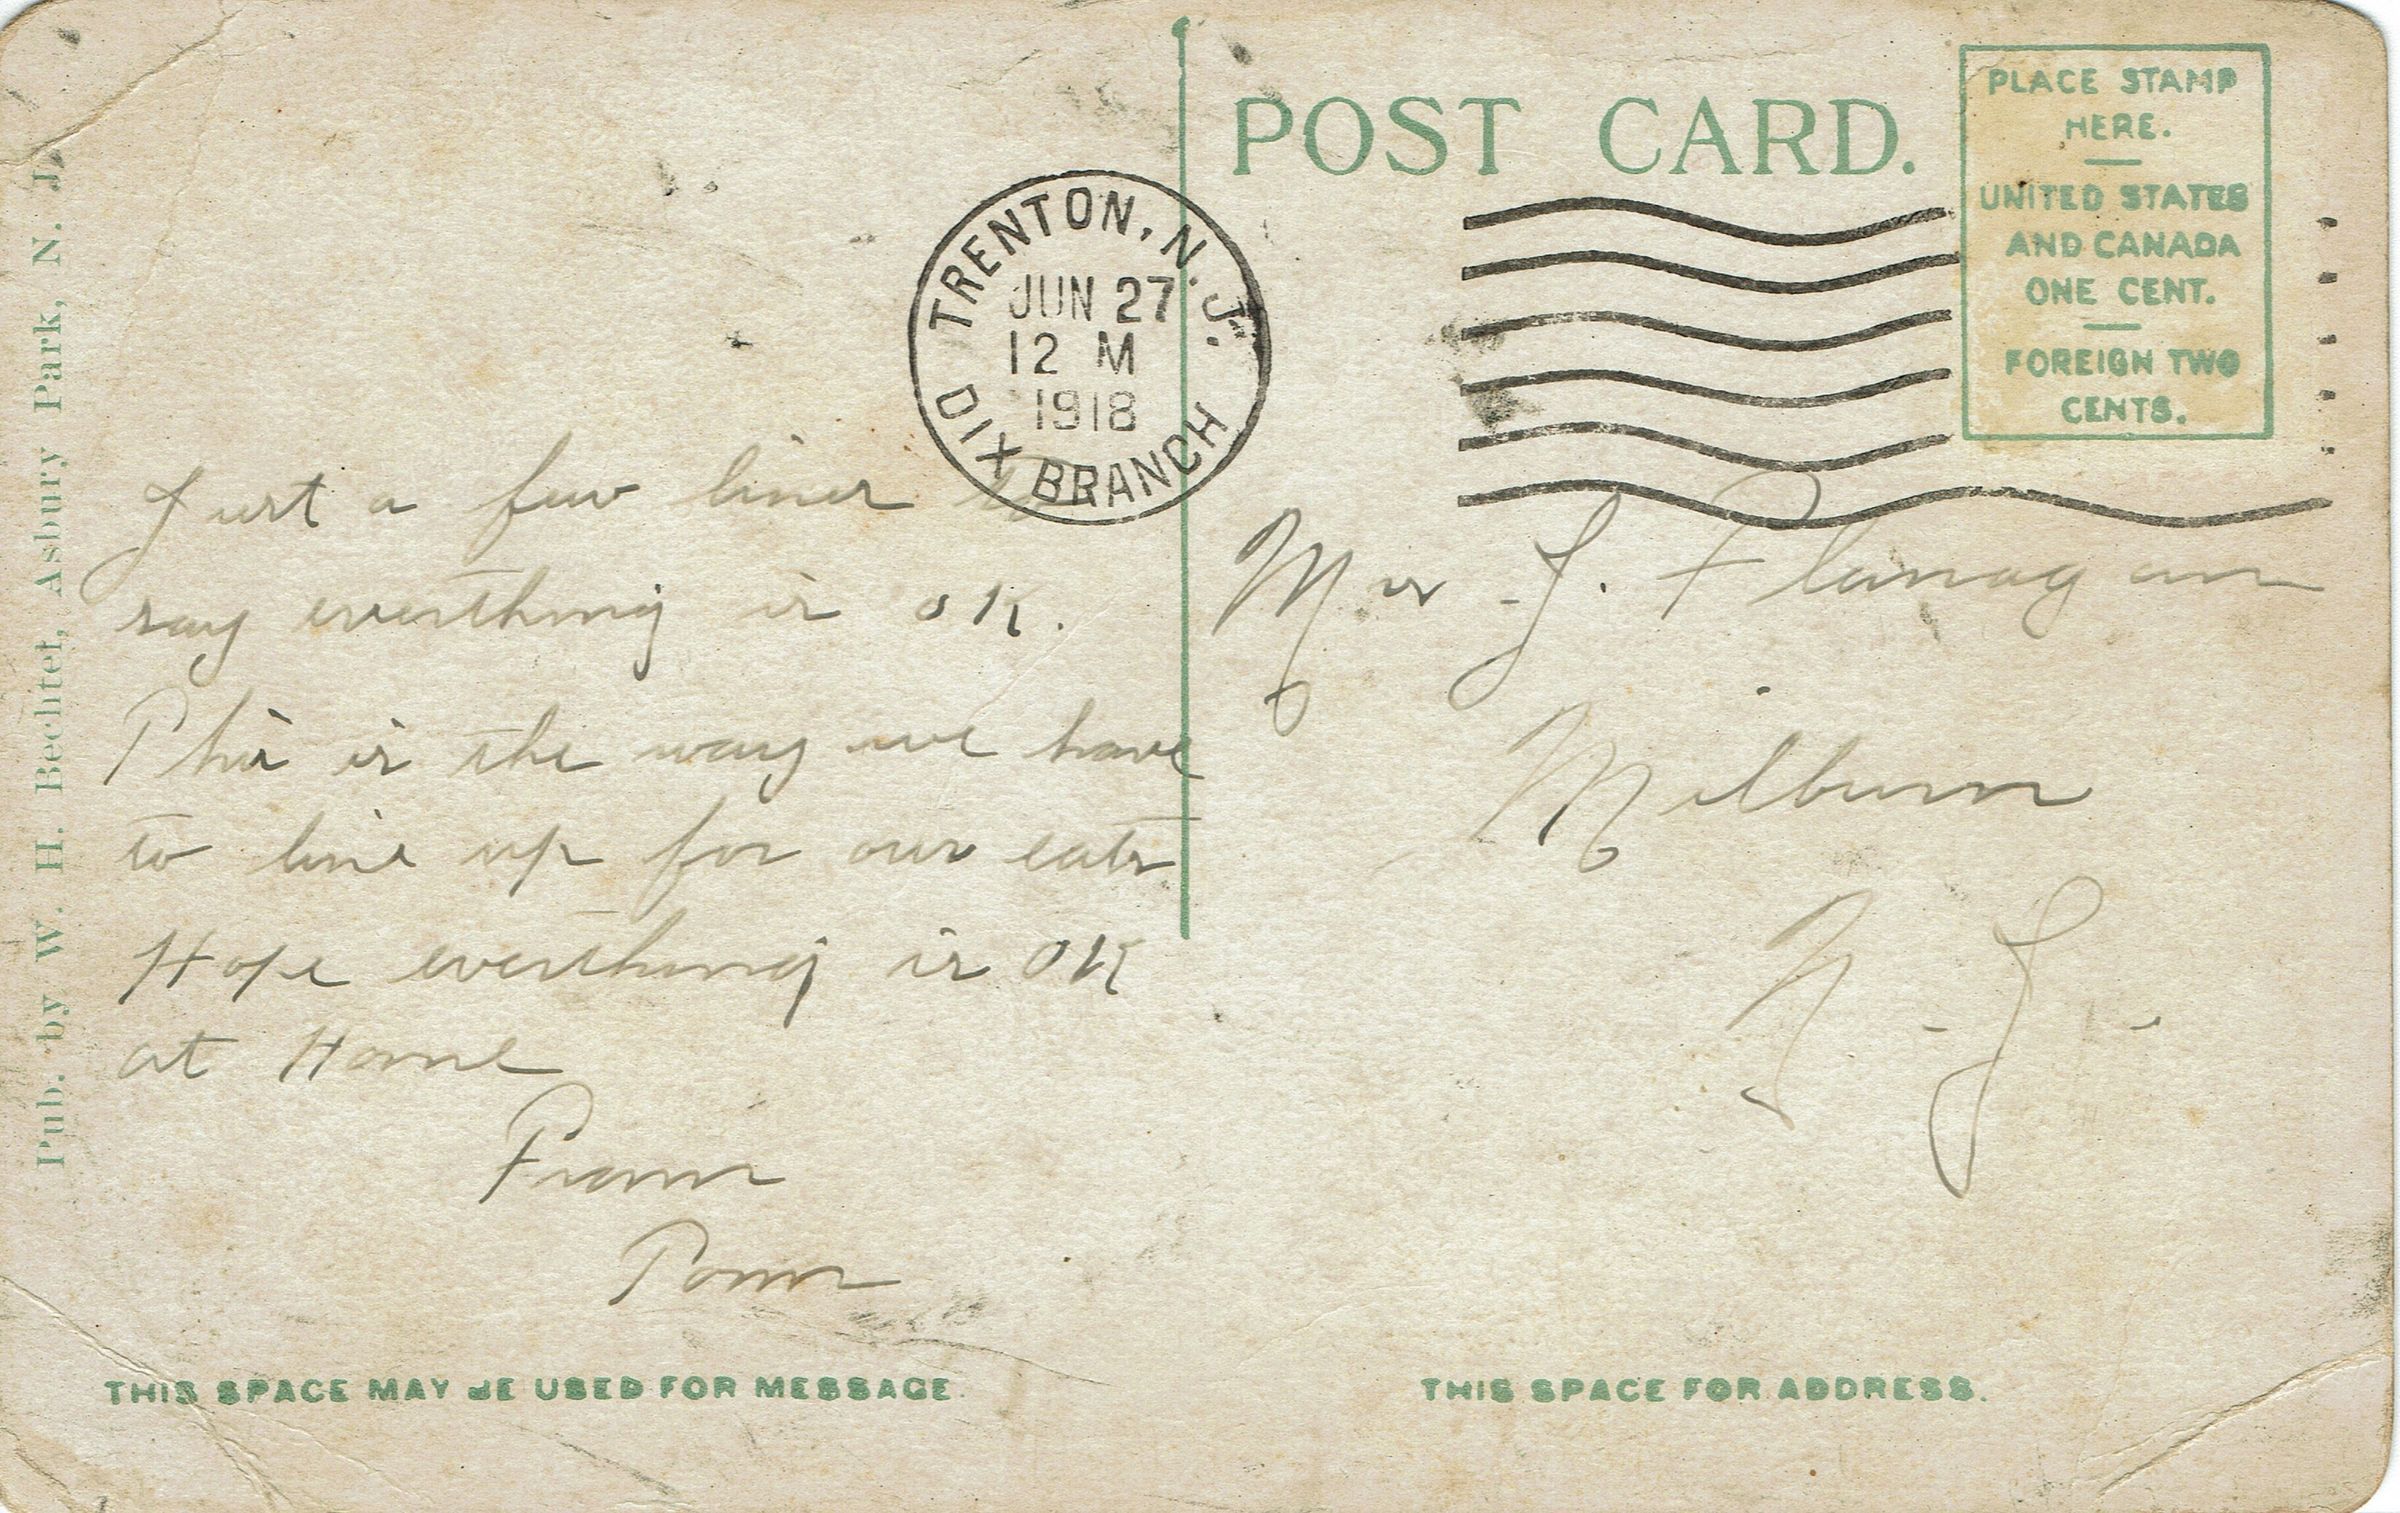 Pub. by W. H. Bechtel, Asbury Park, N. J.
POST CARD.
PLACE STAMP
HERE.
UNITED STATES
AND CANADA
ONE CENT.
FOREIGN TWO
CENTS.
TRENTON, N. J.
JUN 27
12 M
1918
DIX BRANCH
Just a few lines to
say everthing is OK.
This is the way we have
to line up for our eats
Hope everthing is OK
at Home
From
Tom
Mrs J. Flanagan
Milburn
N. J.
THIS SPACE MAY BE USED FOR MESSAGE.
THIS SPACE FOR ADDRESS.